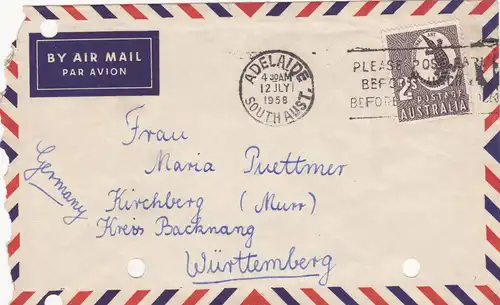 BY AIR MAIL
PAR AVION
ADELAIDE
12 JLY
1956
SOUTH AUST.
PLEASE POST
BEFORE
BEFORE
2s
POSTAGE
AUSTRALIA
Frau
Maria Puettmer
Germany
Kirchberg (Murr)
Kreis Backnang
Württemberg